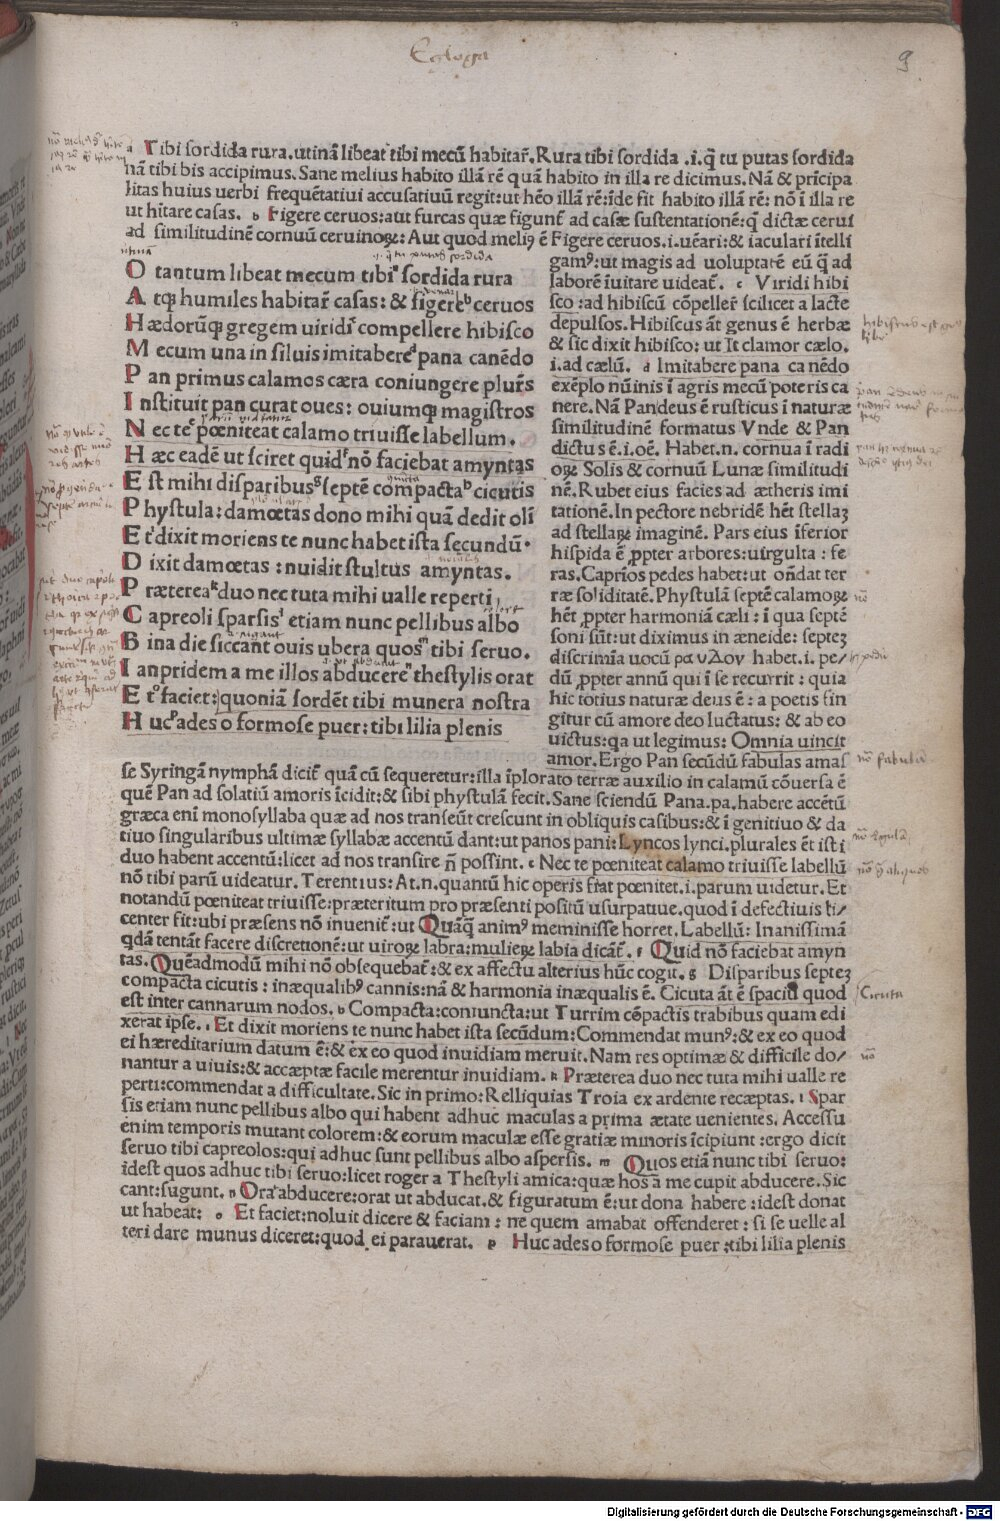 Egloga
9
a Tibi sordida rura.utinā libeat tibi mecū habitar̄.Rura tibi sordida .i.q̄ tu putas sordida
nā tibi bis accipimus.Sane melius habito illā rē quā habito in illa re dicimus.Nā & prīcipa
litas huius uerbi frequētatiui accusatiuū regit:ut hēo illā rē:īde fit habito illā rē: nō ī illa re
ut hītare casas. b Figere ceruos:aut furcas quæ figunt̄ ad casæ sustentationē:q̄ dictæ cerui
ad similitudinē cornuū ceruinoꝝ: Aut quod meliꝯ ē Figere ceruos.i.uēari:& iaculari ītelli
gamꝰ:ut magis ad uoluptatē eū q̄ ad
laborē īuitare uideat̄. c Viridi hibi
sco :ad hibiscū cōpeller̄ scilicet a lacte
depulsos.Hibiscus āt genus ē herbæ
& sic dixit hibisco: ut It clamor cælo.
i.ad cælū. d Imitabere pana ca nēdo
exēplo nūinis ī agris mecū poteris ca
nere.Nā Pan deus ē rusticus ī naturæ
similitudinē formatus Vnde & Pan
dictus ē.i.oē. Habet.n. cornua ī radi
oꝝ Solis & cornuū Lunæ similitudi
nē.Rubet eius facies ad ætheris imi
tationē.In pectore nebridē hēt stellaꝝ
ad stellaꝝ imaginē. Pars eius īferior
hispida ē ꝓpter arbores:uirgulta : fe
ras.Caprīos pedes habet:ut oñdat ter
ræ soliditatē.Phystulā septē calamoꝝ
hēt ꝓpter harmoniā cæli : ī qua septē
soni sūt:ut diximus in æneide: septeȝ
discrimīa uocū ραυΔον habet.i. pe/
dū ꝓpter annū qui ī se recurrit : quia
hic totius naturæ deus ē : a poetis fin
gitur cū amore deo luctatus: & ab eo
uictus:qa ut legimus: Omnia uincit
amor.Ergo Pan secūdū fabulas amas
O tantum libeat mecum tibi sordida rura
A tqȝ humiles habitar̄ casas: & figere ceruos
H ædorūqȝ gregem uiridi compellere hibisco
M ecum una in siluis imitabere pana canēdo
P an primus calamos cæra coniungere plur̄s
I nstituit pan curat oues: ouiumqȝ magistros
N ec te pœniteat calamo triuisse labellum.
H æc eadē ut sciret quid nō faciebat amyntas
E st mihi disparibus septē compacta cicutis
P hystula:damœtas dono mihi quā dedit olī
E t dixit moriens te nunc habet ista secundū.
D ixit damœtas : nuidit stultus amyntas.
P ræterea duo nec tuta mihi ualle reperti
C apreoli sparsis etiam nunc pellibus albo
B ina die siccant ouis ubera quos tibi seruo.
I anpridem a me illos abducere thestylis orat
E t faciet:quoniā sordēt tibi munera nostra
H uc ades o formose puer:tibi lilia plenis
se Syringā nymphā dicit̄ quā cū sequeretur:illa īplorato terræ auxilio in calamū cōuersa ē
quē Pan ad solatiū amoris īcidit:& sibi phystulā fecit.Sane sciendū Pana.pa.habere accētū
græca enī monosyllaba quæ ad nos transeūt crescunt in obliquis casibus:& ī genitiuo & da
tiuo singularibus ultimæ syllabæ accentū dant:ut panos pani:Lyncos lynci.plurales ēt isti
duo habent accentū:licet ad nos transire ñ possint. e Nec te pœniteat calamo triuisse labellū
nō tibi parū uideatur. Terentius:At.n.quantū hic operis fiat pœnitet.i.parum uidetur.Et
notandū pœniteat triuisse:præteritum pro præsenti positū usurpatiue.quod ī defectiuis li/
center fit:ubi præsens nō inuenit̄:ut Quāq̄ animꝰ meminisse horret.Labellū: Inanissimā
qdā tentāt facere discretionē:ut uiroꝝ labra:mulieꝝ labia dicāt̄. f Quid nō faciebat amyn
tas.Quēadmodū mihi nō obsequebat̄:& ex affectu alterius hūc cogit. g Disparibus septeȝ
compacta cicutis : inæqualibꝰ cannis:nā & harmonia inæqualis ē. Cicuta āt ē spaciū quod
est inter cannarum nodos. h Compacta:coniuncta:ut Turrim cōpactis trabibus quam edi
xerat ipse. i Et dixit moriens te nunc habet ista secūdum:Commendat munꝰ:& ex eo quod
ei hæreditarium datum ē:& ex eo quod inuidiam meruit.Nam res optimæ & difficile do/
nantur a uiuis:& accæptæ facile merentur inuidiam. k Præterea duo nec tuta mihi ualle re
perti:commendat a difficultate.Sic in primo:Relliquias Troia ex ardente recæptas. l Spar
sis etiam nunc pellibus albo qui habent adhuc maculas a prima ætate uenientes. Accessu
enim temporis mutant colorem:& eorum maculæ esse gratiæ minoris īcipiunt :ergo dicit
seruo tibi capreolos:qui adhuc sunt pellibus albo aspersis. m Quos etiā nunc tibi seruo:
idest quos adhuc tibi seruo:licet roger a Thestyli amica:quæ hos a me cupit abducere.Sic
cant:sugunt. n Orat abducere:orat ut abducat.& figuratum ē:ut dona habere :idest donat
ut habeat: o Et faciet:noluit dicere & faciam : ne quem amabat offenderet : si se uelle al
teri dare munus diceret:quod ei parauerat. p Huc ades o formose puer :tibi lilia plenis
Cicuta
Digitalisierung gefördert durch die Deutsche Forschungsgemeinschaft - DFG